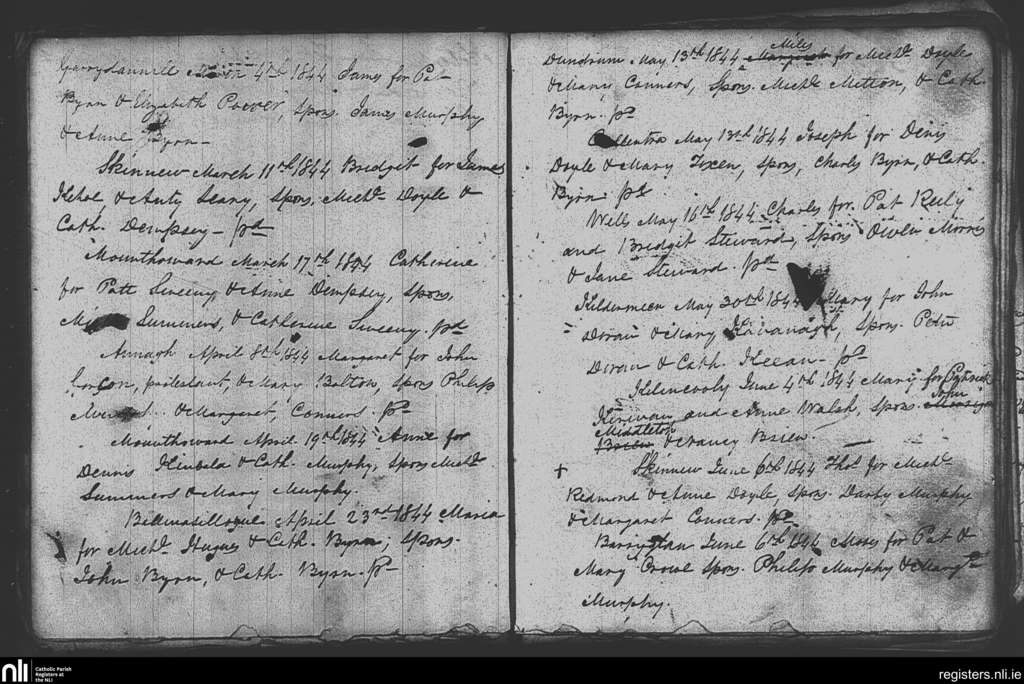 Garrydannill March 4th 1844 James for Pat
Byrn & Elizabeth Poover, spons. James Murphy
& Anne Byrn -
Skinnew March 11th 1844 Bridgit for James
Kehol, & Anty Leary, Spons, Michl. Doyle &
Cath. Dempsey - pd
Mounthoward March 17th 1844 Catherine
for Patt Sweeny & Anne Dempsey, spons,
Summers, & Catherine Sweeny. pd
Annagh April 8th 1844 Margaret for John
protestant, & Mary Bolton, spons Philip
& Margaret, Conners. pd
Mounthoward April 19th 1844 Anne for
Dennis Kinsela & Cath. Murphy, spons Michl.
Summers & Mary Murphy.
April 23rd 1844 Maria
for Michl. Hugnes & Cath. Byrn, spons.
John Byrn, & Cath. Byrn. pd
Miles
Dundrum May 13th 1844 Margaret for Michl. Doyle
& Mary Conners, Spons. Michl. Mitton, & Cath.
Byrn. pd
May 13th 1844 Joseph for Denis
Doyle & Mary Fixen, spons, Charles Byrn, & Cath.
Byrn pd
Wells May 16th 1844 Charles for Pat Reily
and Bridgit Steward, Spons Owen Morris
& Jane Steward. pd
Kildermien May 30th 1844 Mary for John
Doran & Mary Kavanagh, Spons. Peter
Doran & Cath. Keean. pd
Kilincooly June 4th 1844 Mary for Patrick
Kinivan and Anne Walsh, spons. John
Middleton
Brien & Nancy Brien.
+ Skinnew June 6th 1844 Thos. for Michl.
Redmond & Anne Doyle, spons. Darby Murphy
& Margaret Conners. pd
June 6th 1844 Moses for Pat &
Mary Crowe spons. Philip Murphy & Margt
Murphy.
nli
Catholic Parish
Registers at
the NLI
registers.nli.ie